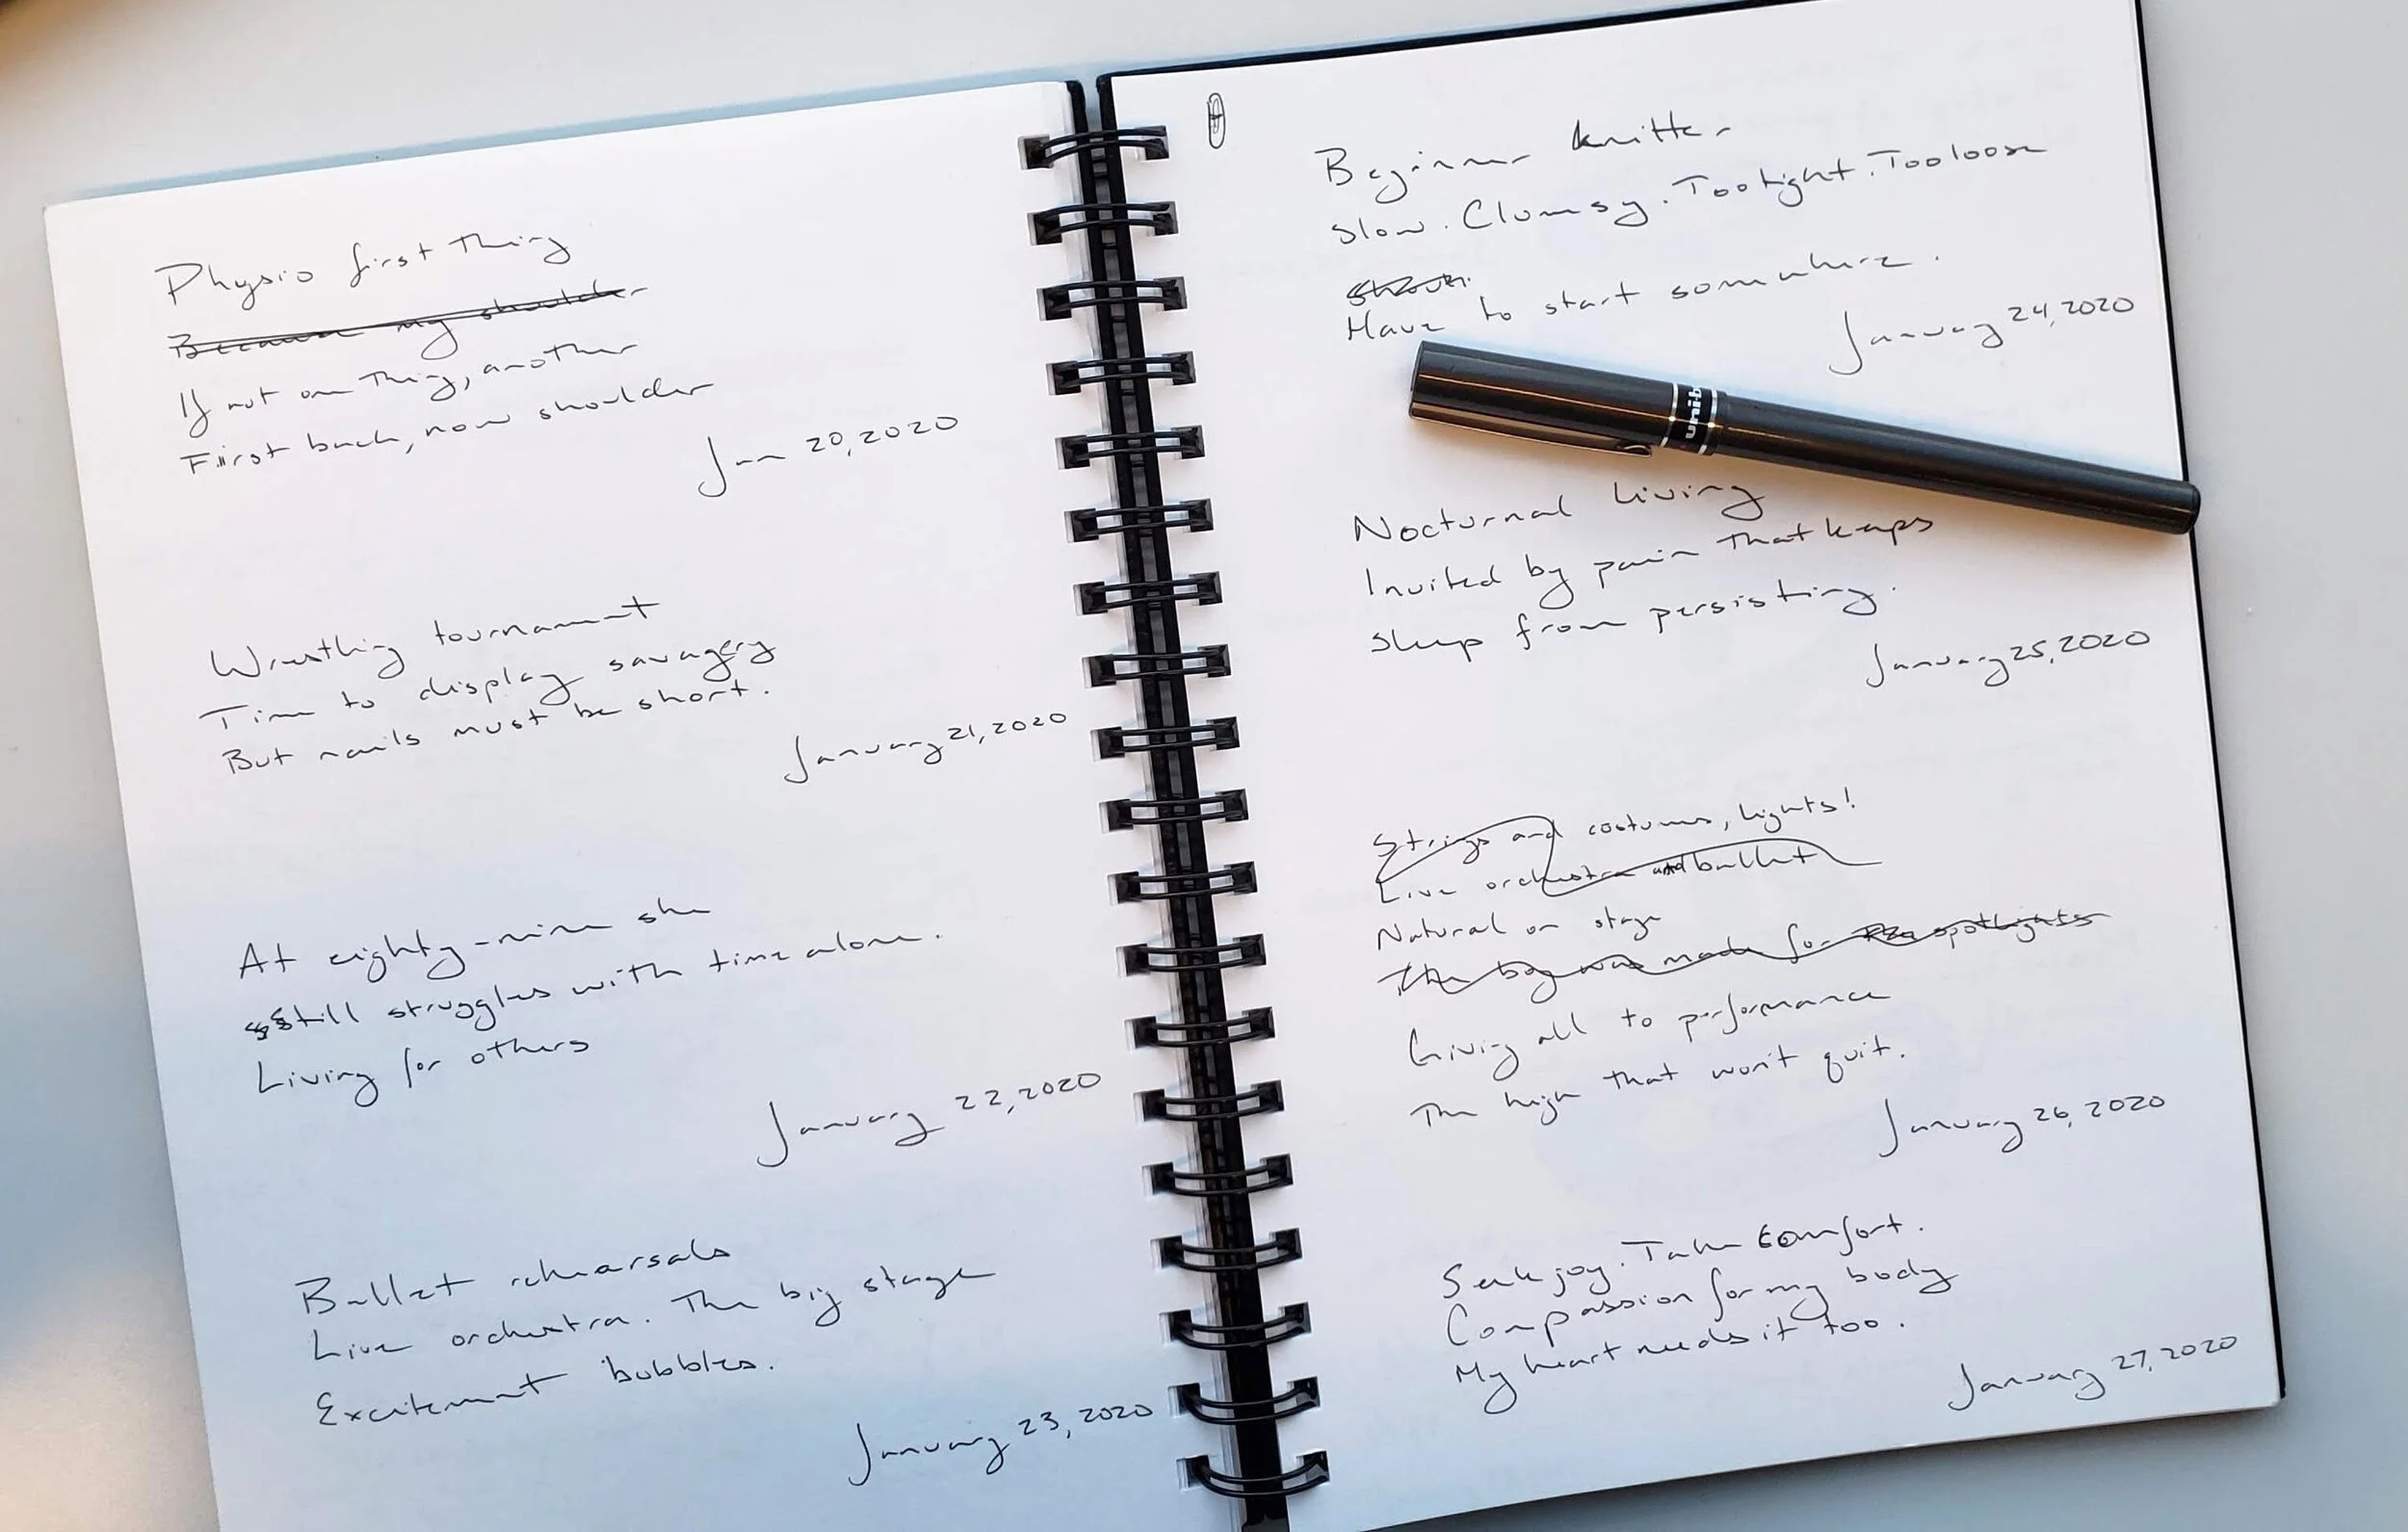 Physio first thing
Because my shoulder
If not one thing, another
First back, now shoulder
Jan 20, 2020
Wrestling tournament
Time to display savagery
But nails must be short.
January 21, 2020
At eighty-nine she
still struggles with time alone.
Living for others
January 22, 2020
Ballet rehearsals
Live orchestra. The big stage
Excitement bubbles.
January 23, 2020
Beginner knitter
Slow. Clumsy. Too tight. Too loose
Have to start somewhere.
January 24, 2020
uni-b
Nocturnal living
Invited by pain that keeps
sleep from persisting.
January 25, 2020
Strings and costumes, lights!
Live orchestra and ballet
Natural on stage
The boy was made for the spotlights
Giving all to performance
The high that won't quit.
January 26, 2020
Seek joy. Take comfort.
Compassion for my body
My heart needs it too.
January 27, 2020